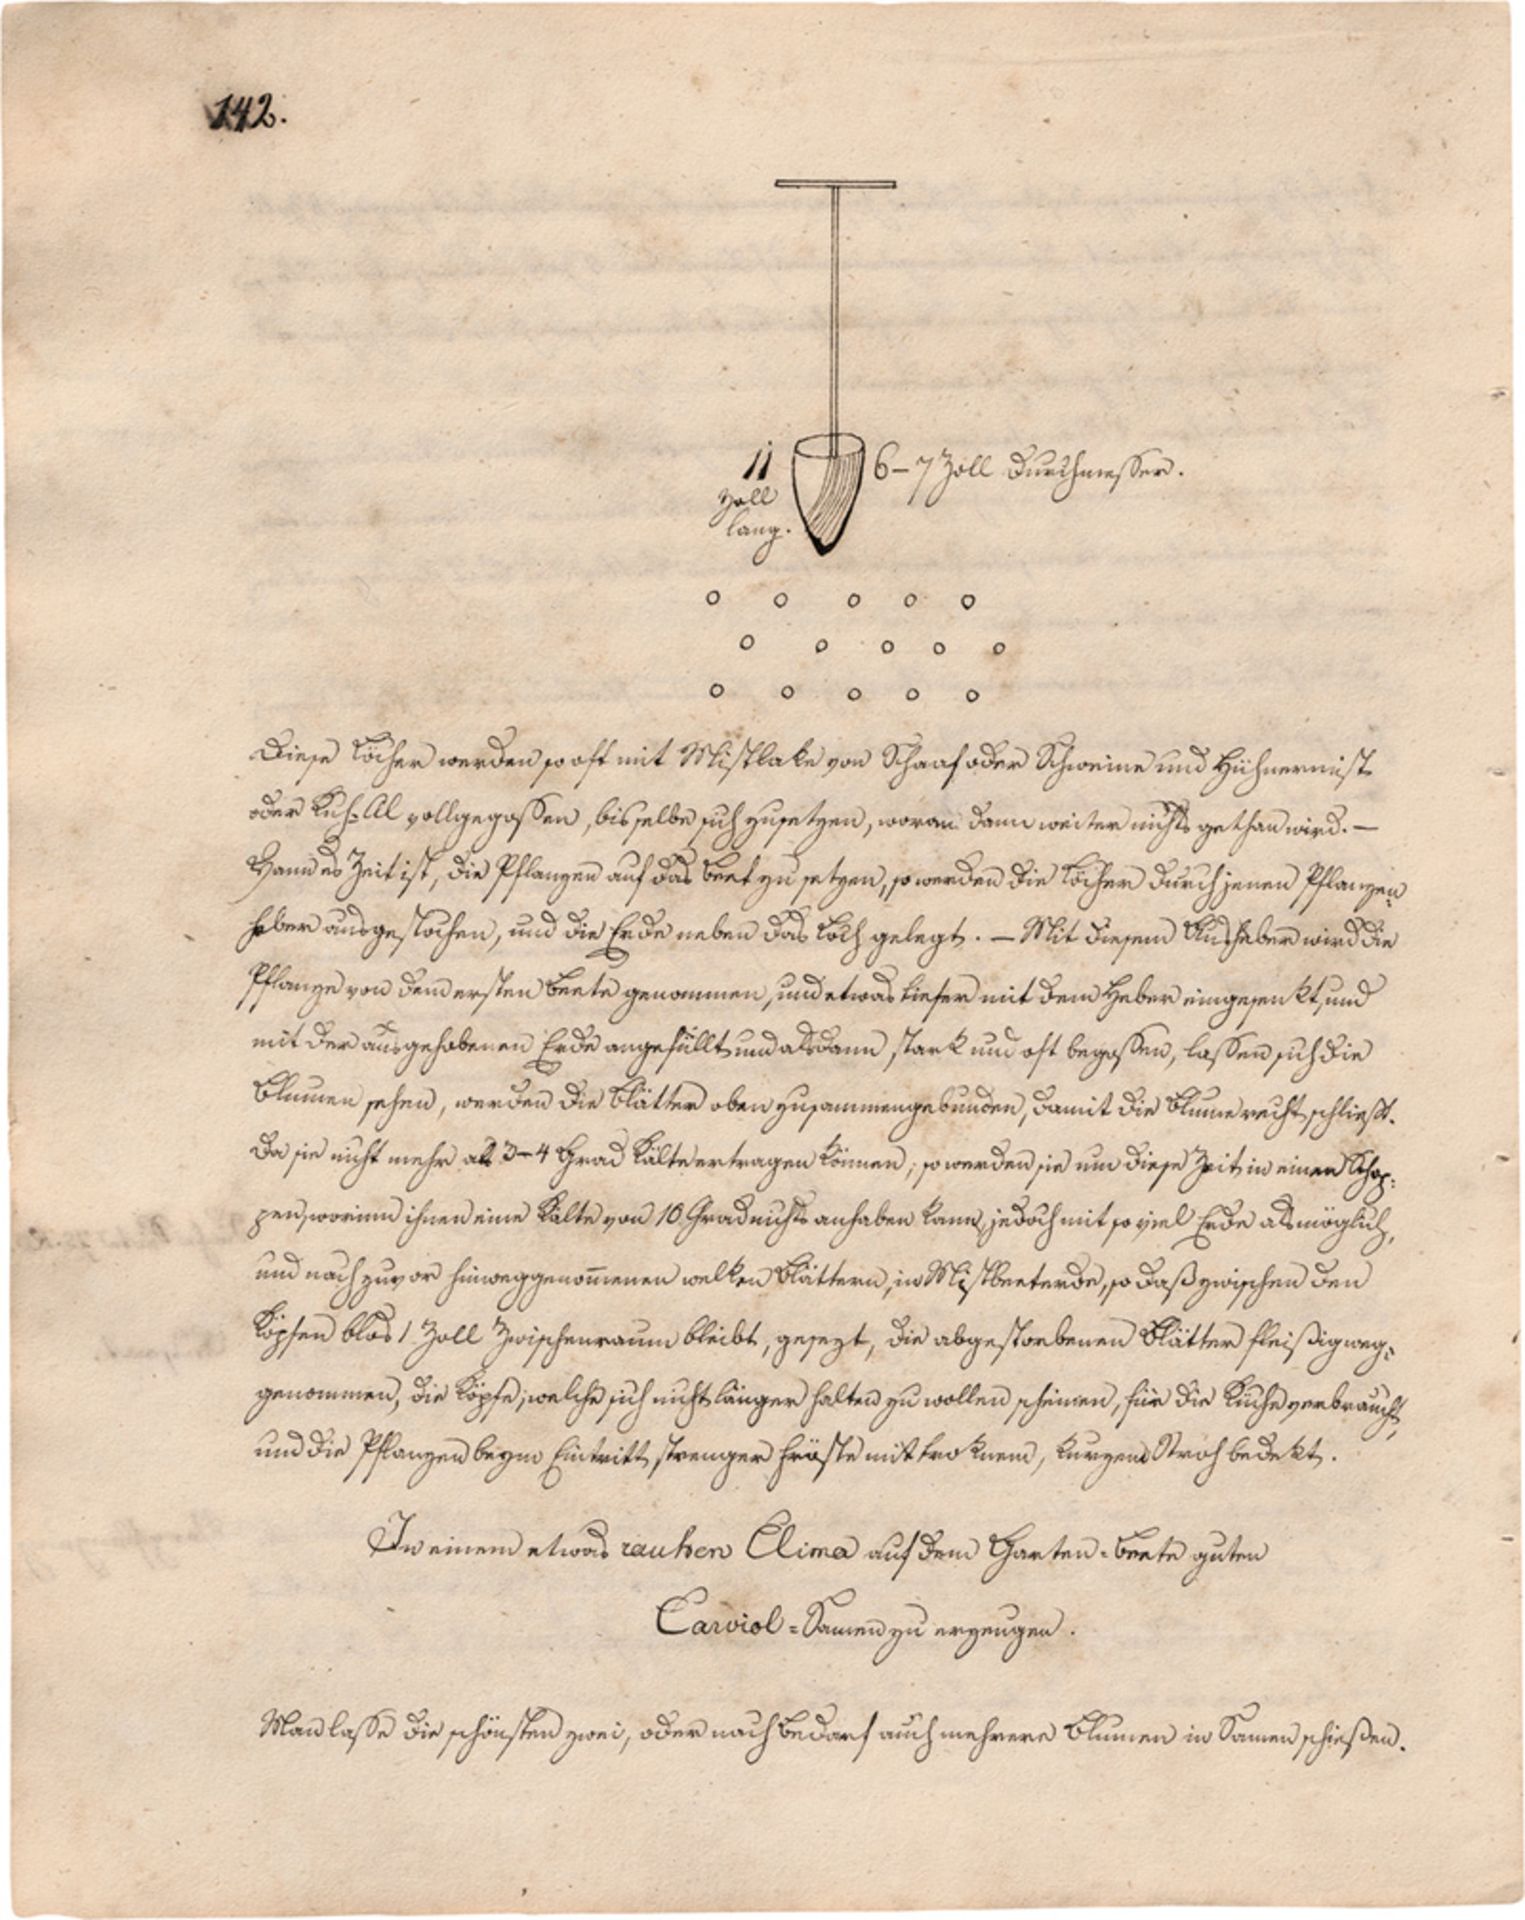 142.
11
Zoll
lang.
6–7 Zoll Durchmesser.
Diese Löcher werden so oft mit Mistlake von Schaaf oder Schweine und Hühnermist
oder Kuh= Al vollgegossen, bis selbe sich zusetzen, woran dann weiter nichts gethan wird. —
Wann es Zeit ist, die Pflanzen auf das Beet zu setzen, so werden die Löcher durch jenen Pflanzen=
heber ausgestochen, und die Erde neben das Loch gelegt. — Mit diesem Ausheber wird die
Pflanze von dem ersten Beete genommen, und etwas tiefer mit dem Heber eingesenkt, und
mit der ausgehobenen Erde angefüllt und alsdann stark und oft begossen, lassen sich die
Blumen sehen, werden die Blätter oben zusammengebunden, damit die Blume recht schließt.
Da sie nicht mehr als 3–4 Grad Kälte ertragen können, so werden sie um diese Zeit in einen Schop=
pen, worinn ihnen eine Kälte von 10 Grad nichts anhaben kann, jedoch mit so viel Erde als möglich,
und nach zuvor hinweggenommenen welken Blättern, in Mistbeeterde, so daß zwischen den
Köpfen blos 1 Zoll Zwischenraum bleibt, gesezt, die abgestorbenen Blätter fleißig weg=
genommen, die Köpfe, welche sich nicht länger halten zu wollen scheinen, für die Küche verbraucht,
und die Pflanzen beym Eintritt strenger Fröste mit troknem, kurzem Stroh bedekt.
In einem etwas rauhen Clima auf dem Garten=Beete guten
Carviol=Samen zu erzeugen.
Man lasse die schönsten zwei, oder nach Bedarf auch mehrere Blumen in Samen schießen.